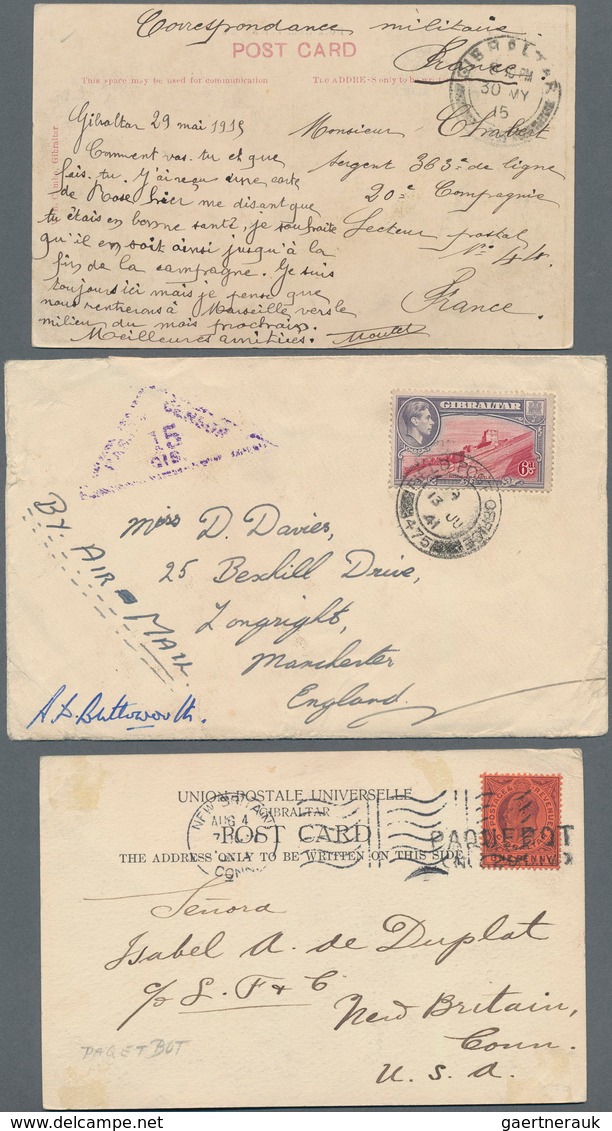 Correspondance militaire
France
POST CARD
This space may be used for communication
The ADDRE-S only to be
GIBRALTAR
PM
30 MY
15
Gibraltar
Gibraltar 29 mai 1915
Comment vas-tu et que
fais-tu. J'ai reçu une carte
de Rose hier me disant que
tu étais en bonne santé, je souhaite
qu'il en soit ainsi jusqu'à la
fin de la campagne. Je suis
toujours ici mais je pense que
nous rentrerons à Marseille vers le
milieu du mois prochain.
Meilleures amitiés. Moutet
Monsieur Chabert
sergent 363e de ligne
20e Compagnie
Secteur postal
No 44.
France.
CENSOR
15
GIB
GIBRALTAR
6d
FIELD POST OFFICE
13 JU
41
475
BY AIR MAIL
Miss D. Davies,
25 Bexhill Drive,
Longright,
Manchester
England.
A. D. Butterworth.
UNION POSTALE UNIVERSELLE
GIBRALTAR
POST CARD
THE ADDRESS ONLY TO BE WRITTEN ON THIS SIDE
NEW BRITAIN
AUG 4
CONN
POSTAGE & REVENUE
PAQUEBOT
Señora
Isabel A. de Duplat
c/o L. F & C.
New Britain,
Conn.
U. S. A.
PAQETBOT
gaertnerauk